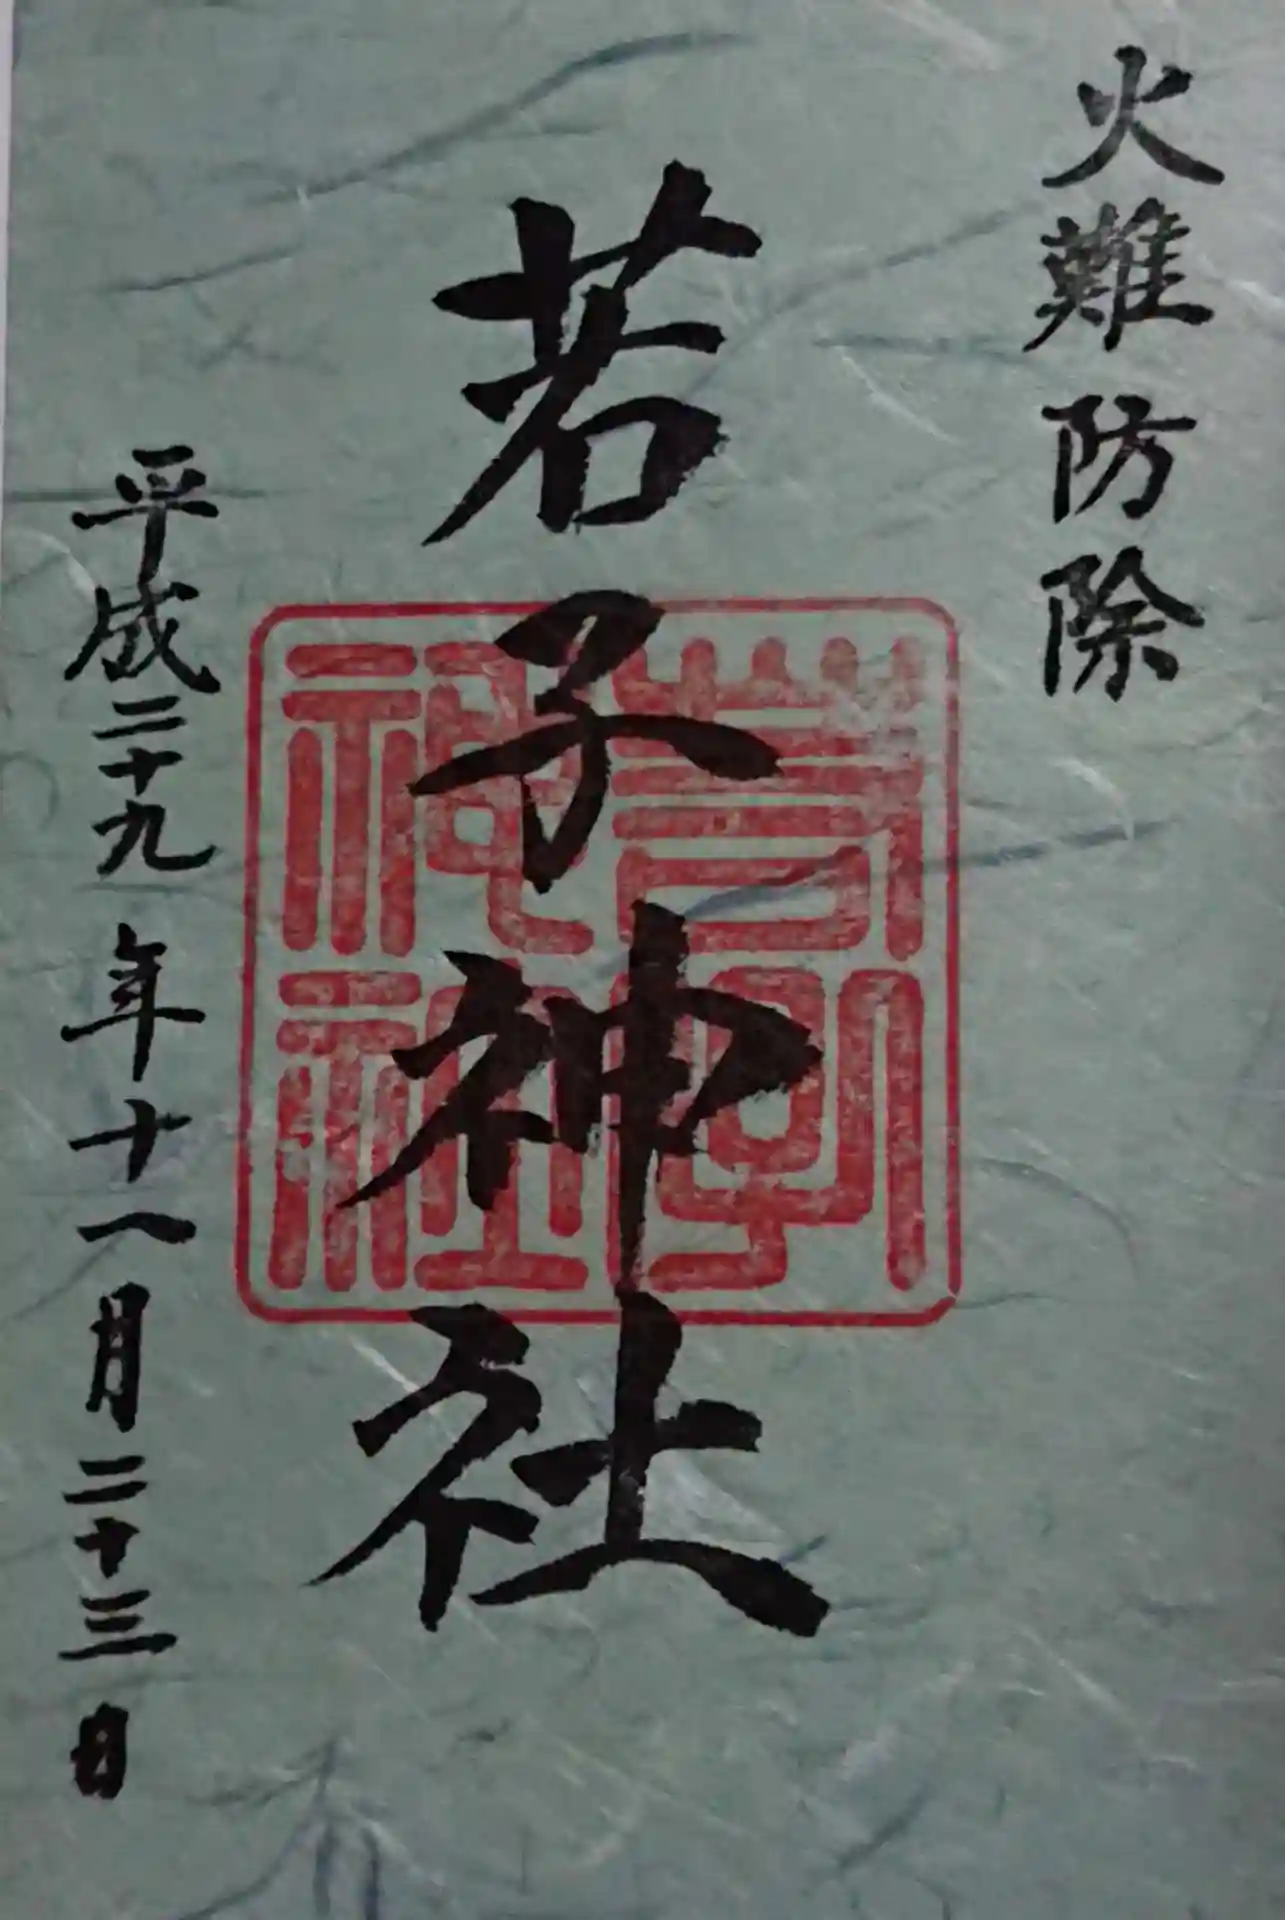 火難防除
若子神社
若子神社
平成二十九年十一月二十三日